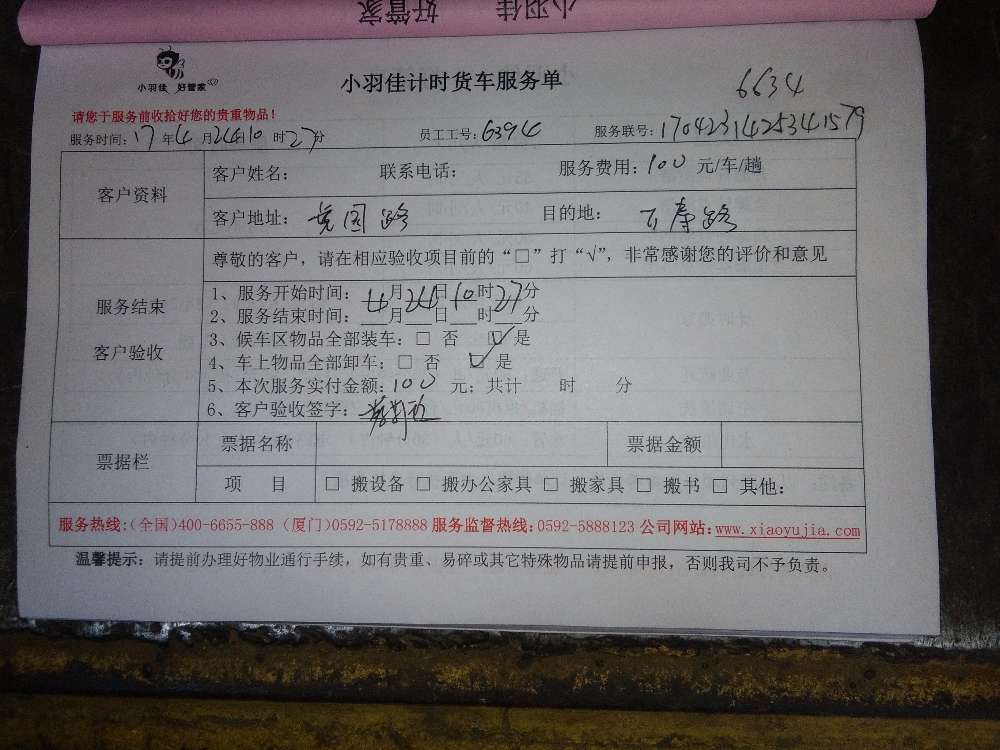 小羽佳 好管家
小羽佳 好管家
小羽佳计时货车服务单
6634
请您于服务前收拾好您的贵重物品!
服务时间:17年4月24日10时27分 员工工号:6394 服务联号:1704231425341579
客户资料
客户姓名: 联系电话: 服务费用:100元/车/趟
客户地址: 园路 目的地: 百寿路
服务结束
客户验收
尊敬的客户,请在相应验收项目前的“□”打“√”,非常感谢您的评价和意见
1、服务开始时间:4月24日10时27分
2、服务结束时间:___月___日___时___分
3、候车区物品全部装车:□ 否 ☑ 是
4、车上物品全部卸车:□ 否 ☑ 是
5、本次服务实付金额:100元;共计 时 分
6、客户验收签字:
票据栏
票据名称 票据金额
项 目 □ 搬设备 □ 搬办公家具 □ 搬家具 □ 搬书 □ 其他:
服务热线:(全国)400-6655-888 (厦门)0592-5178888 服务监督热线:0592-5888123 公司网站:www.xiaoyujia.com
温馨提示:请提前办理好物业通行手续,如有贵重、易碎或其它特殊物品请提前申报,否则我司不予负责。